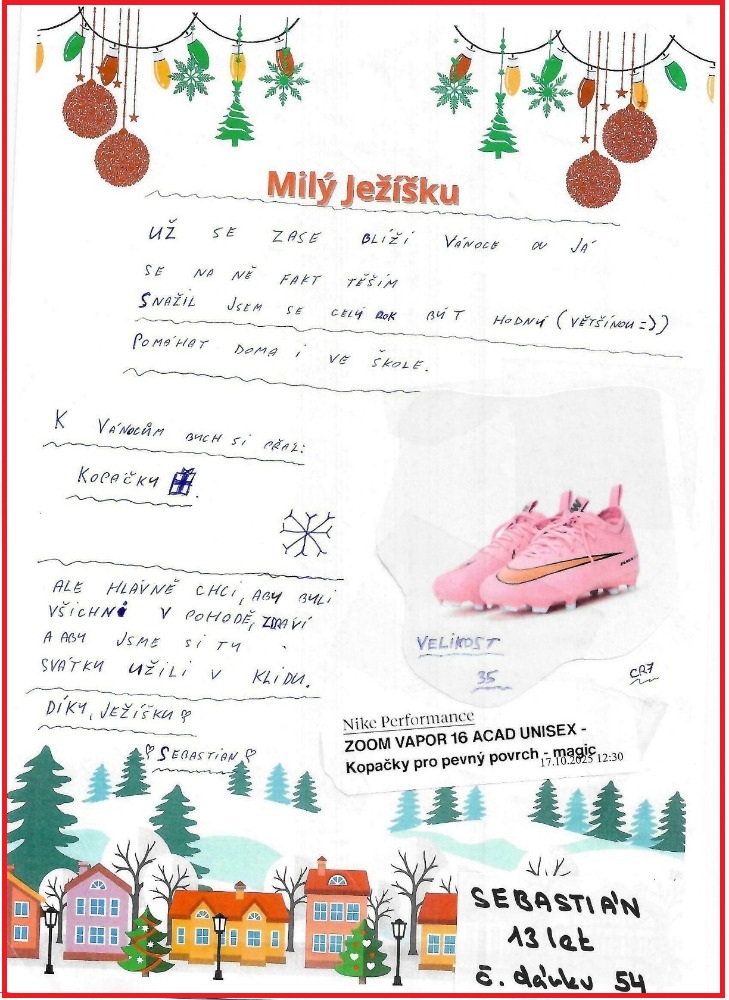 Milý Ježíšku
UŽ SE ZASE BLÍŽÍ VÁNOCE A JÁ
SE NA NĚ FAKT TĚŠÍM
SNAŽIL JSEM SE CELÝ ROK BÝT HODNÝ (VĚTŠINOU =))
POMÁHAT DOMA I VE ŠKOLE.
K VÁNOCŮM BYCH SI PŘÁL:
KOPAČKY
ALE HLAVNĚ CHCI, ABY BYLI
VŠICHNI V POHODĚ, ZDRAVÍ
A ABY JSME SI TY
SVÁTKY UŽILI V KLIDU.
DÍKY, JEŽÍŠKU
SEBASTIAN
VELIKOST
35
CR7
Nike Performance
ZOOM VAPOR 16 ACAD UNISEX -
Kopačky pro pevný povrch - magic
17.10.2025 12:30
SEBASTIÁN
13 let
č. dárku 54